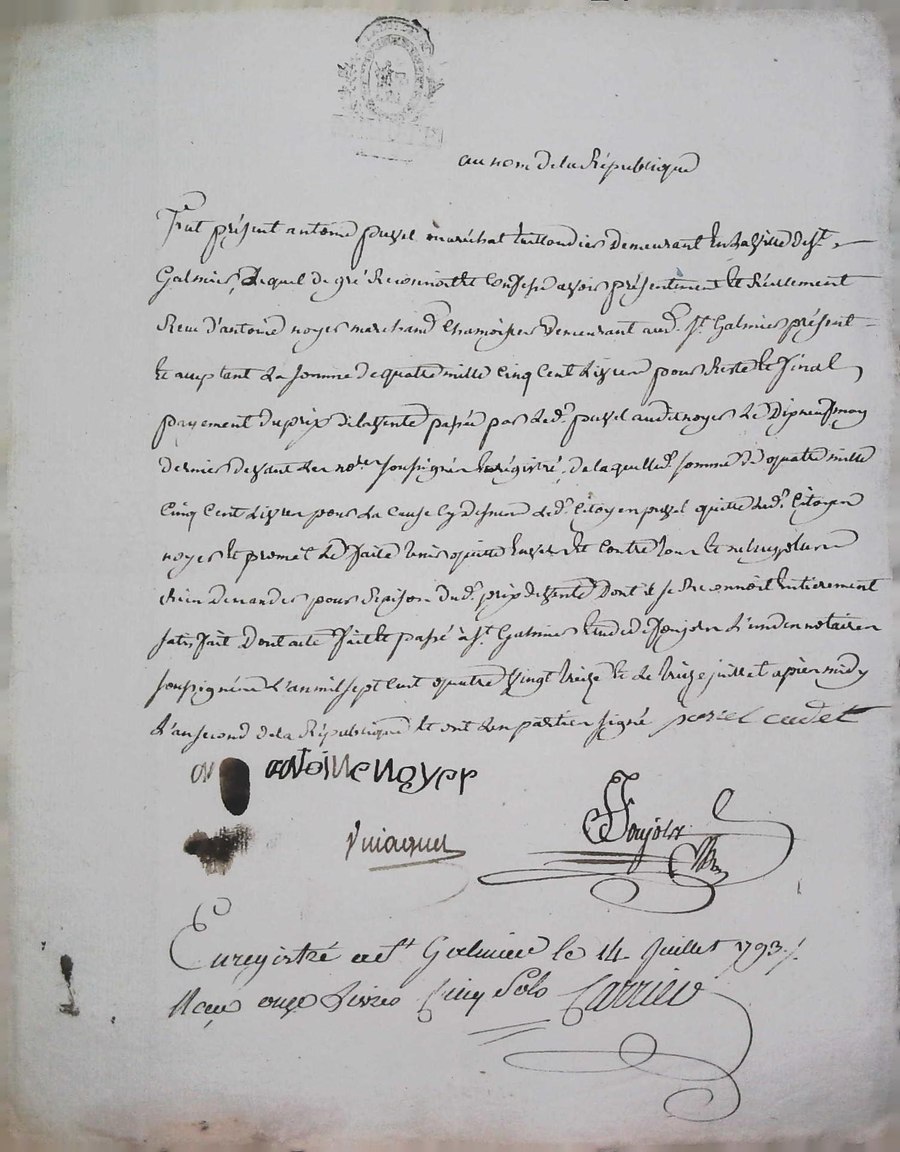 au nom de la République
Fut présent antoine pupel maréchal taillandier demeurant En la ville de St
Galmier, Lequel de gré Reconnoit et Confesse avoir présentement et Réellement
Receu d'antoine noyer marchand Chamoiseur demeurant aud. St. Galmier présent
et acceptant La somme de quatre mille Cinq Cent Livres pour Reste et Final
payement du prix de la vente passée par Led. pupel aud. noyer Le Dix neuf may
dernier devant Les nores soussignés Enrégistré, de laquelle somme de quatre mille
Cinq Cent Livres pour La Cause Cy dessus Led. Citoyen pupel quitte Led. Citoyen
noyer et promet Le faire tenir quitte Envers et Contre tous et
Rien demander pour Raison dud. prix de vente Dont il se Reconnoit Entièrement
satisfait Dont acte fait et passé à St. Galmier Etude de Jonjon L'un des notaires
soussignés L'an mil sept cent quatre vingt treize et Le treize juillet après midy
L'an second de la République et ont Les parties signé cadet
antoine noyer
Enregistré a St Galmier le 14 Juillet 1793
Reçu onze Livres Cinq Sols Carrieu